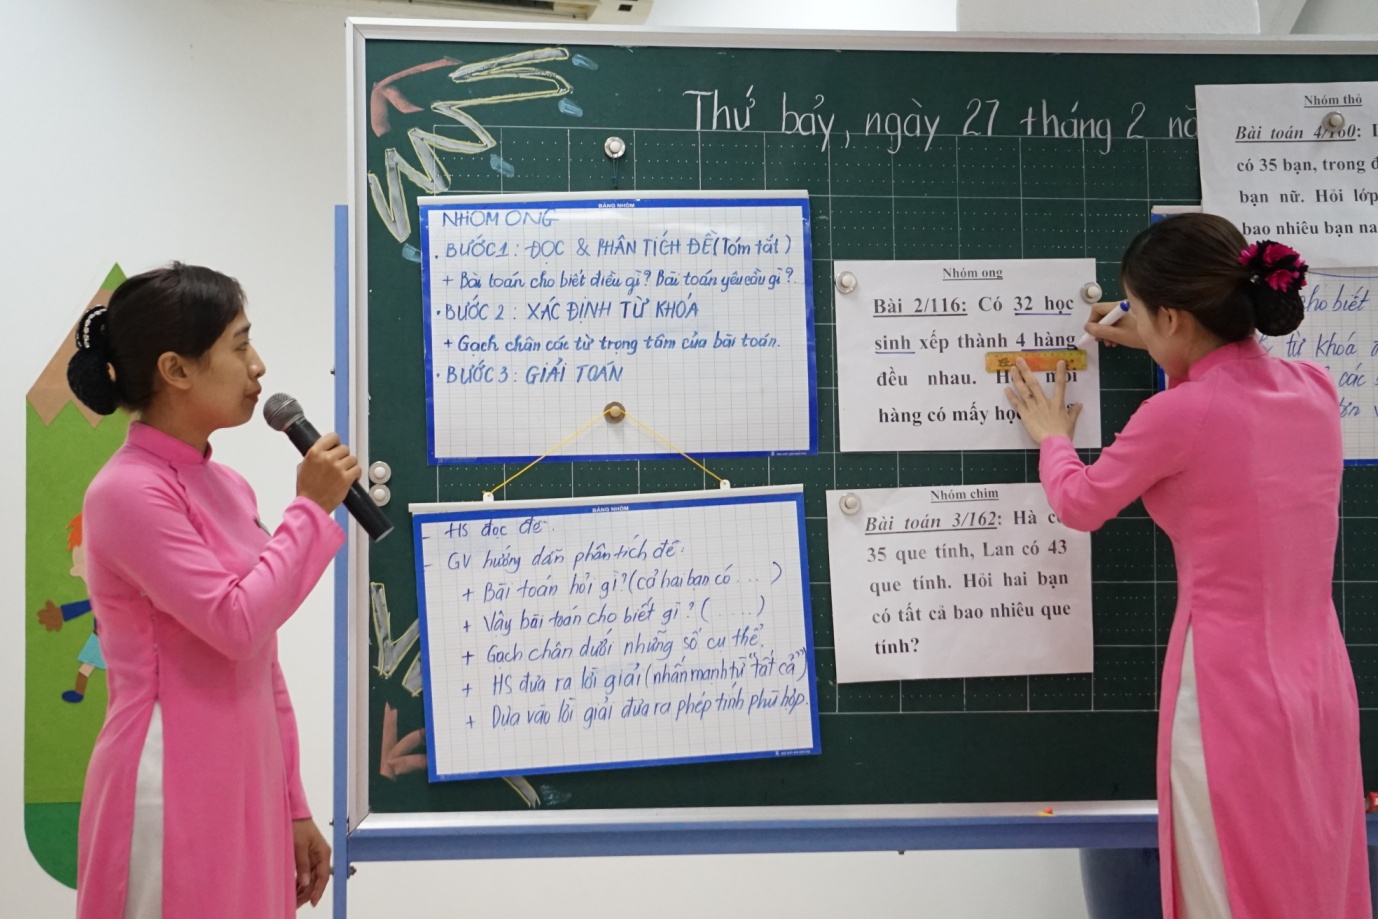 Thứ bảy, ngày 27 tháng 2
BẢNG NHÓM
NHÓM ONG
. BƯỚC 1: ĐỌC & PHÂN TÍCH ĐỀ (Tóm tắt)
+ Bài toán cho biết điều gì? Bài toán yêu cầu gì?
. BƯỚC 2: XÁC ĐỊNH TỪ KHÓA
+ Gạch chân các từ trọng tâm của bài toán.
. BƯỚC 3: GIẢI TOÁN
BẢNG NHÓM
- HS đọc đề.
- GV hướng dẫn phân tích đề:
+ Bài toán hỏi gì? (cả hai bạn có ... )
+ Vậy bài toán cho biết gì? ( ..... )
+ Gạch chân dưới những số cụ thể.
+ HS đưa ra lời giải (nhấn mạnh từ "tất cả")
+ Dựa vào lời giải đưa ra phép tính phù hợp.
Nhóm ong
Bài 2/116: Có 32 học
sinh xếp thành 4 hàng
đều nhau.
hàng có mấy
Nhóm chim
Bài toán 3/162: Hà
35 que tính, Lan có 43
que tính. Hỏi hai bạn
có tất cả bao nhiêu que
tính?
Nhóm thỏ
Bài toán
có 35 bạn, trong
bạn nữ. Hỏi lớp
bao nhiêu bạn
cho biết
từ khóa
các